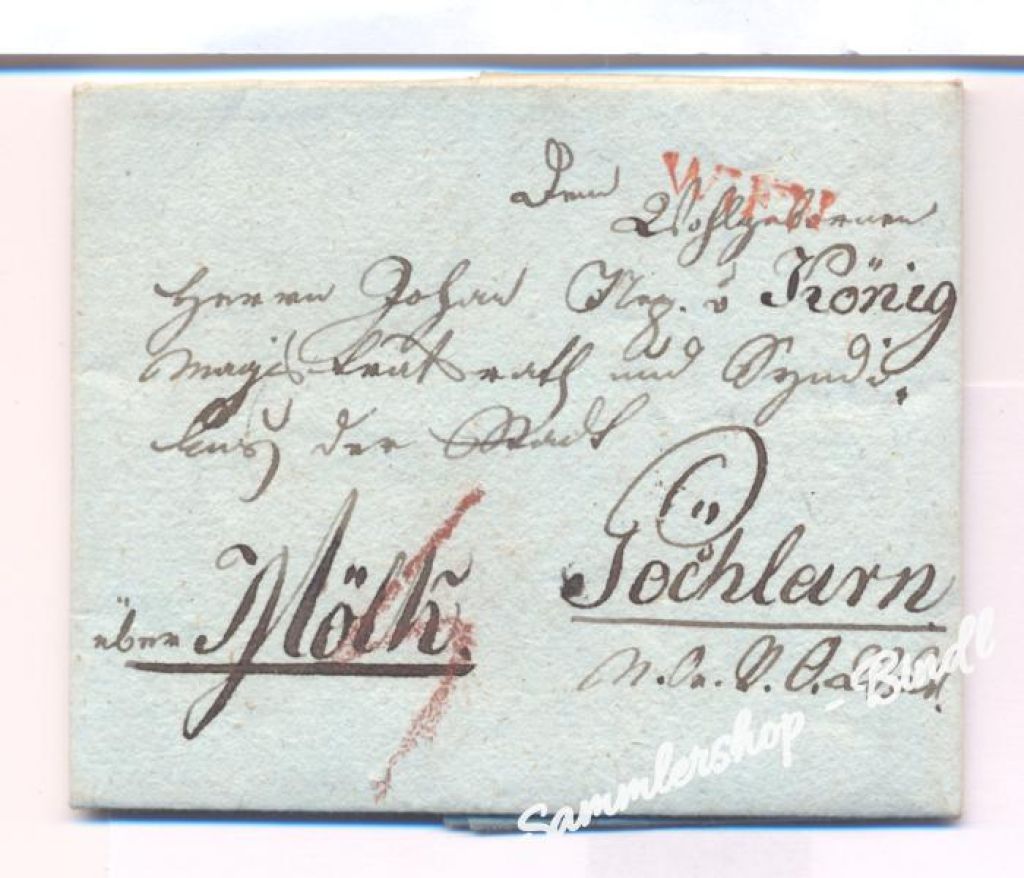 WIEN
Dem
Wohlgebornen
Herrn Johan Nep. v König
Magistratsrath und Syndi-
kus der Stadt
Pöchlarn
über Mölk.
N. Oe. V. O. W. W.
Sammlershop - Bindl